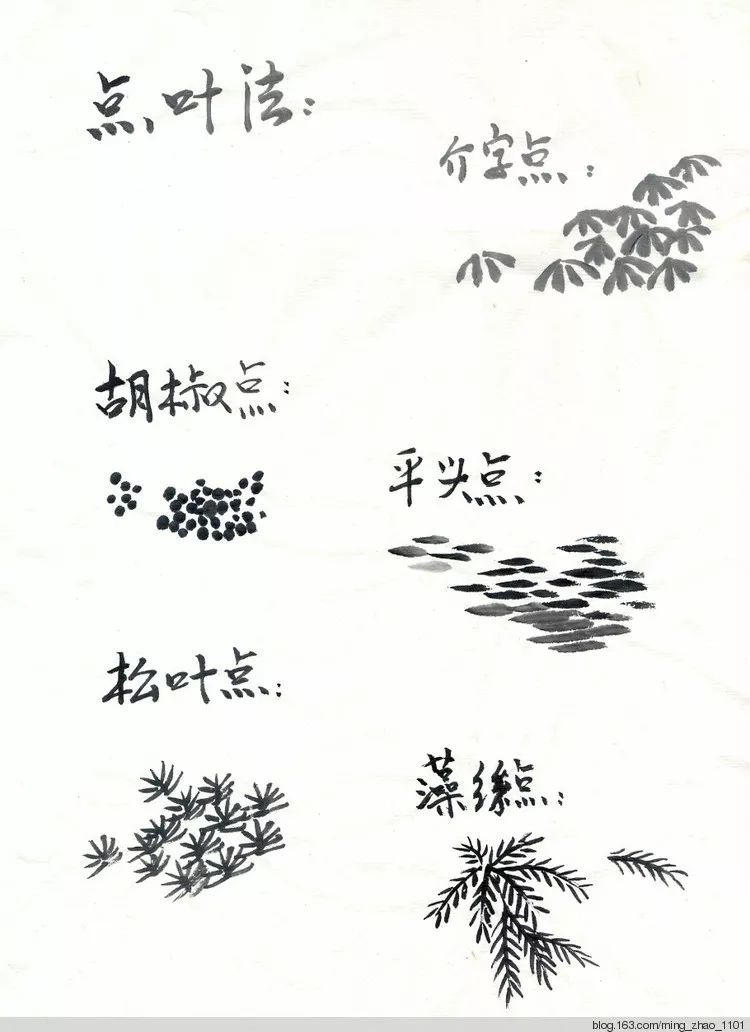 点叶法：
介字点：
胡椒点：
平头点：
松叶点：
藻丝点：
blog.163.com/ming_zhao_1101